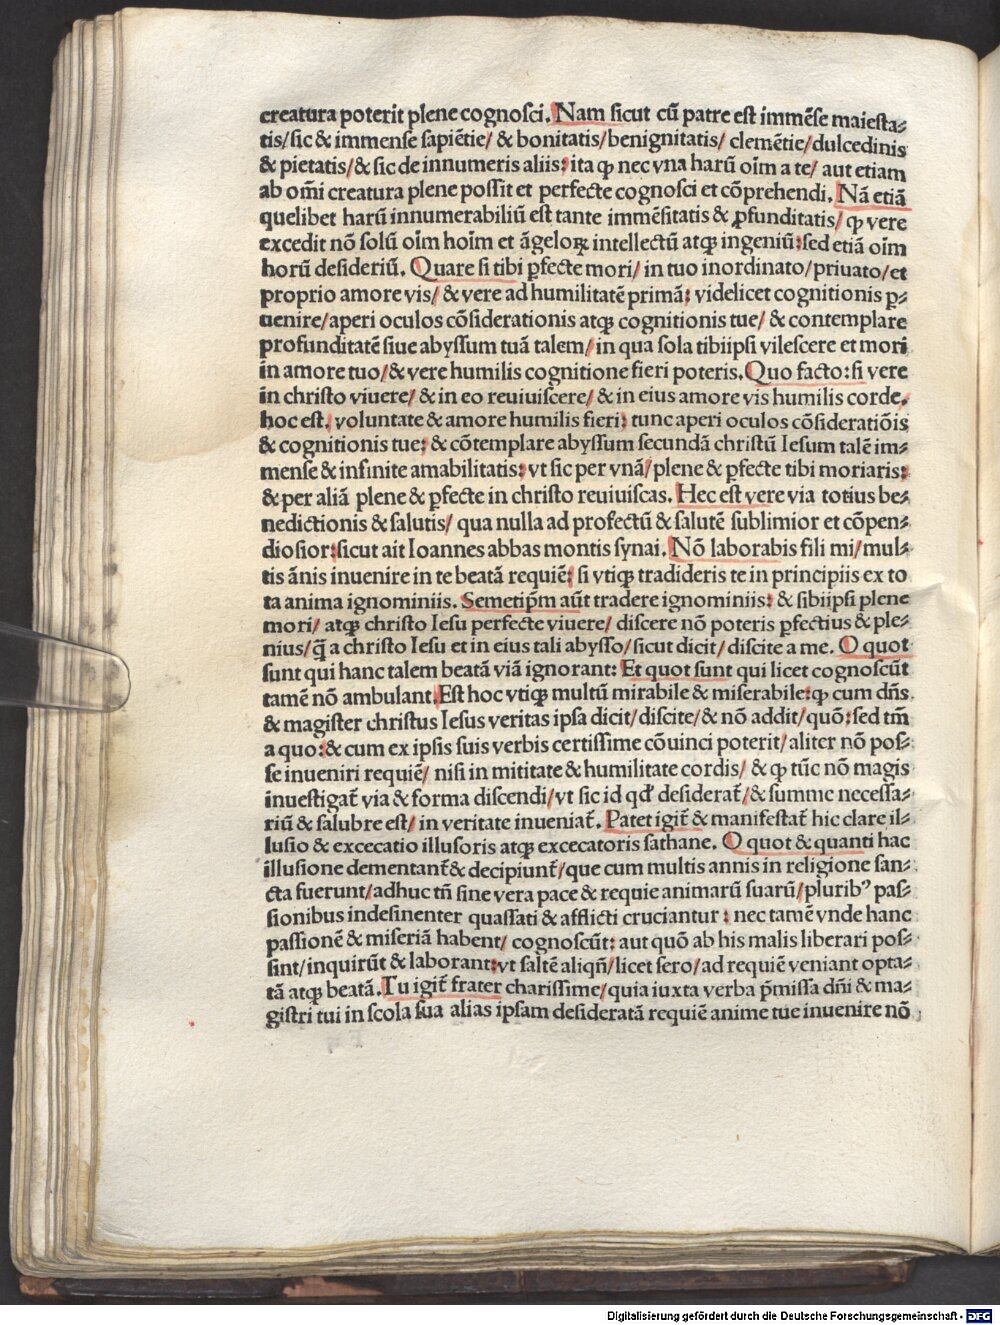 creatura poterit plene cognoſci. Nam ſicut cū patre eſt immēſe maieſta⸗
tis/ſic & immenſe ſapiētie/ & bonitatis/benignitatis/ clemētie/dulcedinis
& pietatis/& ſic de innumeris aliis: ita ꝙ nec vna harū oīm a te/ aut etiam
ab om̄i creatura plene poſſit et perfecte cognoſci et cōprehendi. Nā etiā
quelibet harū innumerabiliū eſt tante immēſitatis & ꝓfunditatis/ ꝙ vere
excedit nō ſolū oīm hoīm et āgeloꝝ intellectū atqꝫ ingeniū:ſed etiā oīm
horū deſideriū. Quare ſi tibi ꝑfecte mori/ in tuo inordinato/priuato/et
proprio amore vis/ & vere ad humilitatē primā: videlicet cognitionis ꝑ⸗
uenire/aperi oculos cōſiderationis atqꝫ cognitionis tue/ & contemplare
profunditatē ſiue abyſſum tuā talem/ in qua ſola tibiipſi vileſcere et mori
in amore tuo/& vere humilis cognitione fieri poteris. Quo facto:ſi vere
in chriſto viuere/ & in eo reuiuiſcere/ & in eius amore vis humilis corde,
hoc eſt, voluntate & amore humilis fieri: tunc aperi oculos cōſideratiōis
& cognitionis tue: & cōtemplare abyſſum ſecundā chriſtū Ieſum talē im⸗
menſe & infinite amabilitatis: vt ſic per vnā/plene & ꝑfecte tibi moriaris:
& per aliā plene & ꝑfecte in chriſto reuiuiſcas. Hec eſt vere via totius be⸗
nedictionis & ſalutis/ qua nulla ad profectū & ſalutē ſublimior et cōpen⸗
dioſior:ſicut ait Ioannes abbas montis ſynai. Nō laborabis fili mi/mul⸗
tis ānis inuenire in te beatā requiē: ſi vtiqꝫ tradideris te in principiis ex to
ta anima ignominiis. Semetip̄m aūt tradere ignominiis: & ſibiipſi plene
mori/ atqꝫ chriſto Ieſu perfecte viuere/ diſcere nō poteris ꝑfectius & ple⸗
nius/q̄ a chriſto Ieſu et in eius tali abyſſo/ſicut dicit/diſcite a me. O quot
ſunt qui hanc talem beatā viā ignorant: Et quot ſunt qui licet cognoſcūt
tamē nō ambulant. Eſt hoc vtiqꝫ multū mirabile & miſerabile:ꝙ cum dn̄s
& magiſter chriſtus Ieſus veritas ipſa dicit/diſcite/& nō addit/quō:ſed tm̄
a quo:& cum ex ipſis ſuis verbis certiſſime cōuinci poterit/aliter nō poſ⸗
ſe inueniri requiē/ niſi in mititate & humilitate cordis/ & ꝙ tūc nō magis
inueſtigat̄ via & forma diſcendi/vt ſic id qd̕ deſiderat̄/& ſumme neceſſa⸗
riū & ſalubre eſt/ in veritate inueniat̄. Patet igit̄ & manifeſtat̄ hic clare il⸗
luſio & excecatio illuſoris atqꝫ excecatoris ſathane. O quot & quanti hac
illuſione dementant̄ & decipiunt̄/que cum multis annis in religione ſan⸗
cta fuerunt/adhuc tn̄ ſine vera pace & requie animarū ſuarū/pluribꝰ paſ⸗
ſionibus indeſinenter quaſſati & afflicti cruciantur: nec tamē vnde hanc
paſſionē & miſeriā habent/ cognoſcūt: aut quō ab his malis liberari poſ⸗
ſint/inquirūt & laborant:vt ſaltē aliqn̄/licet ſero/ad requiē veniant opta⸗
tā atqꝫ beatā. Tu igit̄ frater chariſſime/quia iuxta verba p̄miſſa dn̄i & ma⸗
giſtri tui in ſcola ſua alias ipſam deſideratā requiē anime tue inuenire nō
Digitalisierung gefördert durch die Deutsche Forschungsgemeinschaft - DFG